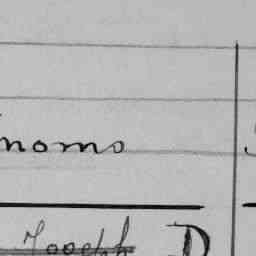 nomo
Joseph D